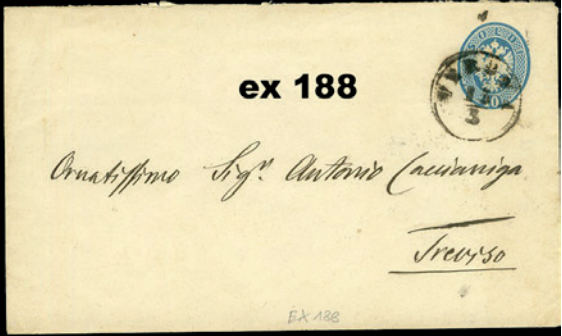 SOLDI
10
12
3
ex 188
Ornatissimo Sig.r Antonio Caccianiga
Treviso
EX 188